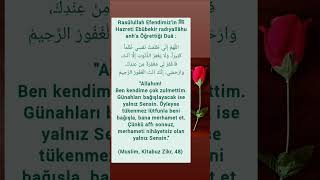 Rasûlullah Efendimiz'in ﷺ
Hazreti Ebûbekir radıyallâhu
anh'a Öğrettiği Duâ :
اللَّهُمَّ إِنِّي ظَلَمْتُ نَفْسِي ظُلْمًا
كَثِيرًا، وَلَا يَغْفِرُ الذُّنُوبَ إِلَّا أَنْتَ،
فَاغْفِرْ لِي مَغْفِرَةً مِنْ عِنْدِكَ،
وَارْحَمْنِي، إِنَّكَ أَنْتَ الْغَفُورُ الرَّحِيمُ
"Allahım!
Ben kendime çok zulmettim.
Günahları bağışlayacak ise
yalnız Sensin. Öyleyse
tükenmez lütfunla beni
bağışla, bana merhamet et,
Çünkü affı sonsuz,
merhameti nihâyetsiz olan
yalnız Sensin."
(Muslim, Kitabuz Zikr, 48)